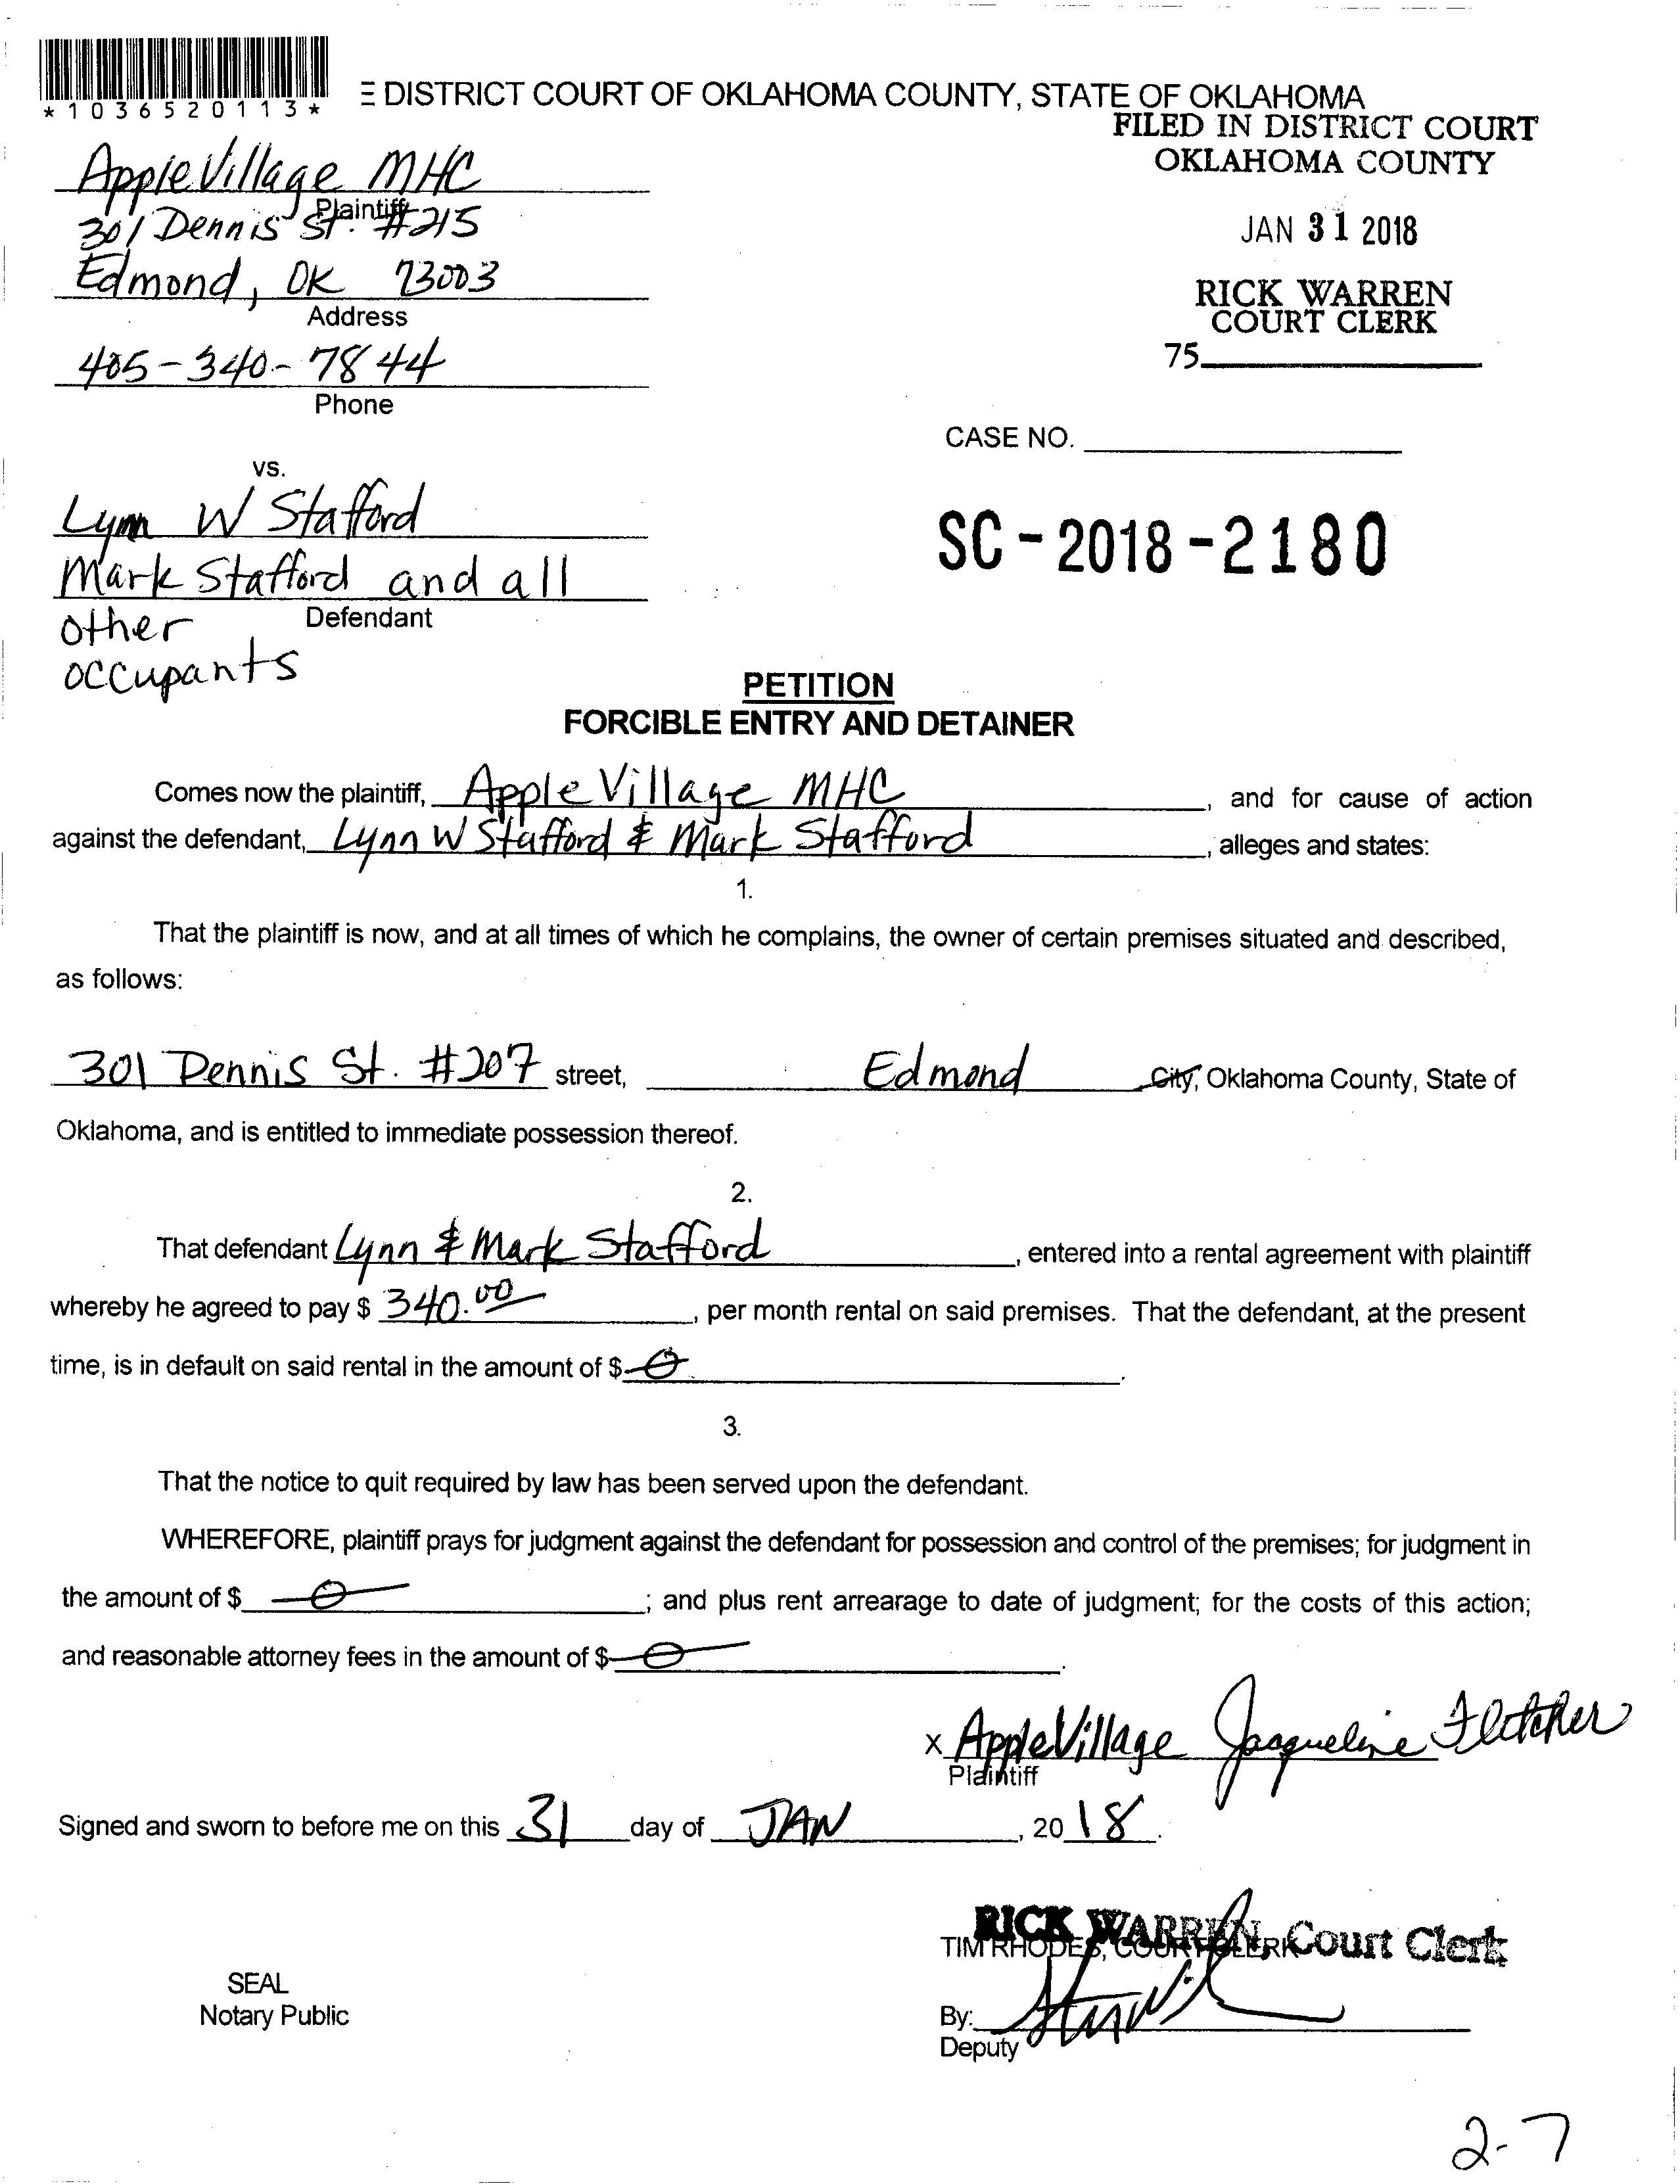 *1036520113*
DISTRICT COURT OF OKLAHOMA COUNTY, STATE OF OKLAHOMA
FILED IN DISTRICT COURT
OKLAHOMA COUNTY
JAN 31 2018
RICK WARREN
COURT CLERK
75
Apple Village MHC
Plaintiff
301 Dennis St. #215
Edmond, OK 73003
Address
405-340-7844
Phone
CASE NO.
SC-2018-2180
vs.
Lynn W Stafford
Mark Stafford and all
Defendant
other
occupants
PETITION
FORCIBLE ENTRY AND DETAINER
Comes now the plaintiff, Apple Village MHC, and for cause of action
against the defendant, Lynn W Stafford & Mark Stafford, alleges and states:
1.
That the plaintiff is now, and at all times of which he complains, the owner of certain premises situated and described,
as follows:
301 Dennis St. #207 street, Edmond City, Oklahoma County, State of
Oklahoma, and is entitled to immediate possession thereof.
2.
That defendant Lynn & Mark Stafford, entered into a rental agreement with plaintiff
whereby he agreed to pay $ 340.00, per month rental on said premises. That the defendant, at the present
time, is in default on said rental in the amount of $ 0.
3.
That the notice to quit required by law has been served upon the defendant.
WHEREFORE, plaintiff prays for judgment against the defendant for possession and control of the premises; for judgment in
the amount of $ 0; and plus rent arrearage to date of judgment; for the costs of this action;
and reasonable attorney fees in the amount of $ 0.
x Apple Village Jacqueline Fletcher
Plaintiff
Signed and sworn to before me on this 31 day of JAN, 2018.
RICK WARREN, Court Clerk
TIM RHODES, COURT CLERK
SEAL
Notary Public
By:
Deputy
2-7